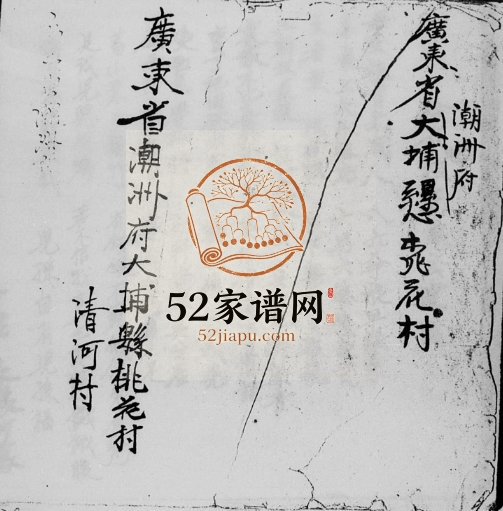 廣東省大埔縣桃花村
潮州府
廣東省潮州府大埔縣桃花村
清河村
52家谱网
52jiapu.com